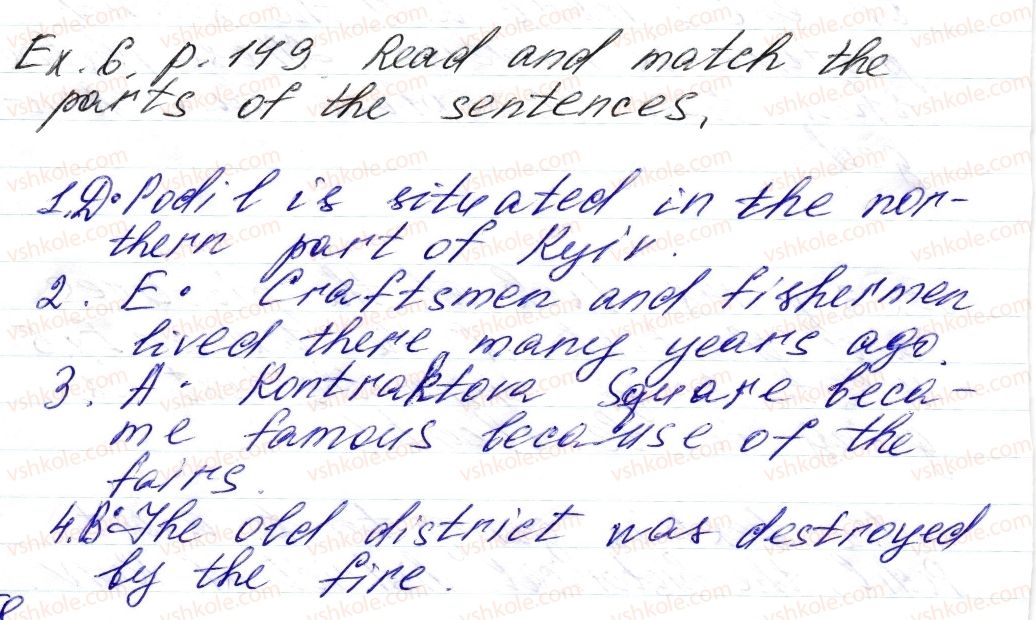 Ex. 6. p. 149. Read and match the
parts of the sentences.
1. D. Podil is situated in the nor-
thern part of Kyiv.
2. E. Craftsmen and fishermen
lived there many years ago.
3. A. Kontraktova Square beca-
me famous because of the
fairs.
4. B. The old district was destroyed
by the fire.